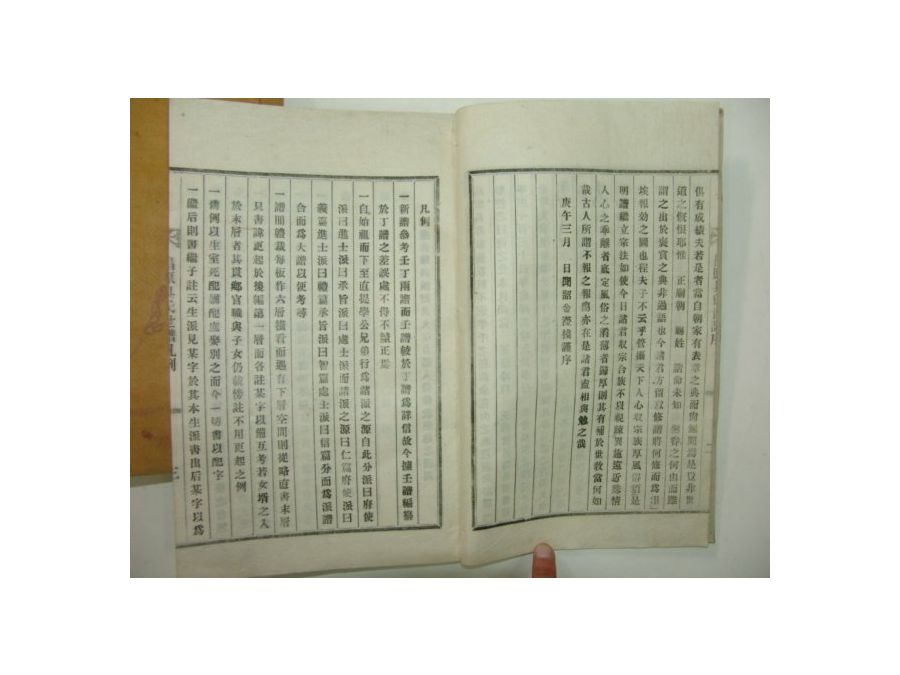 俱有成績夫若是者當自朝家有表章之典
道之慨恨耶惟 正廟朝 賜姓 誥命未知
謂之出於褒賞之典非過語也今諸君方留意修譜將何修而爲
埃報効之圖也程夫子不云乎管攝天下人心收宗族厚風俗須是
明譜系立宗法如使今日諸君收宗合族不以視疎異施遠近
人心之乖離者底定風俗之渝薄者歸厚則其有補於世教當何如
哉古人所謂不報之報應亦在是諸君盍相與勉之哉
庚午三月 日聞韶金瀅模謹序
凡例
一新譜參考壬丁兩譜而壬譜較於丁譜爲詳信故今據壬譜編纂
於丁譜之差誤處不得不釐正焉
一自始祖而下至直提學公兄弟行爲諸派之源自此分派曰府使
派曰進士派曰承旨派曰處士派而諸派之源曰仁篇府使派曰
義篇進士派曰禮篇承旨派曰智篇處士派曰信篇分而爲派譜
合而爲大譜以便考尋
一譜册體裁每板作六層橫看而遇有下層空間則從略直書末層
只書諱更起於後編第一層而各註某字以備互考若女壻之入
於末層者其貫鄕官職與子女仍載傍註不用更起之例
一舊例以生室死配謄處區別之而今一切書以配字
一繼后則書繼子註云生派見某字於其本生派書出后某字以爲